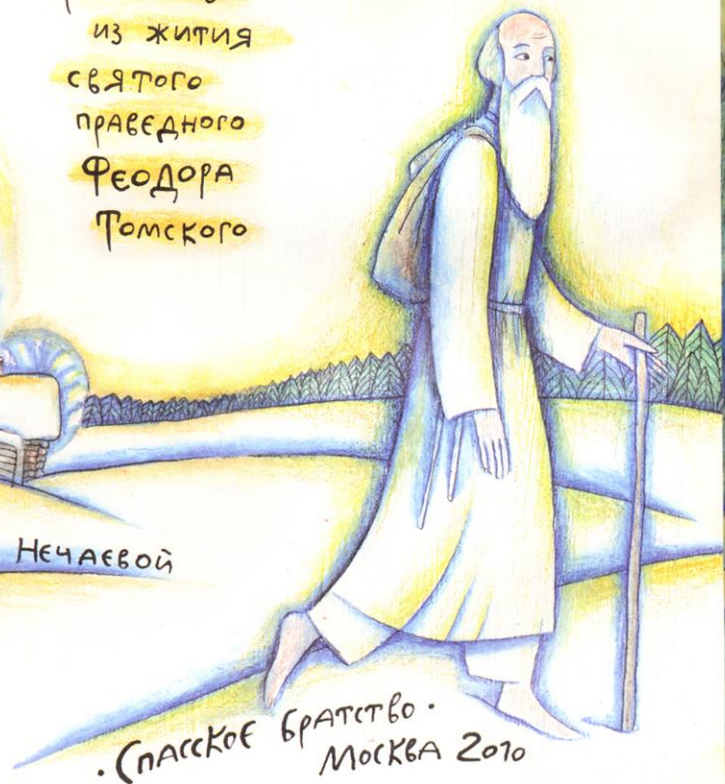 из жития
святого
праведного
Феодора
Томского
Нечаевой
· Спасское братство ·
Москва 2010